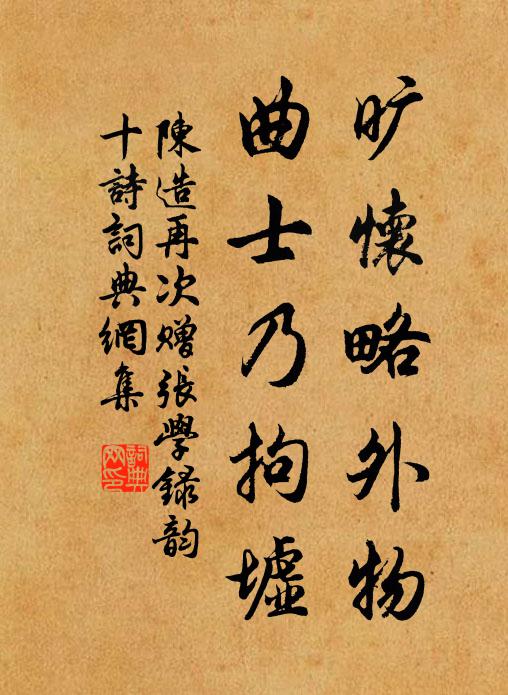 旷懷略外物
曲士乃拘墟
陳造再次贈張學錄韵
十詩詞典網集
詞典
网印